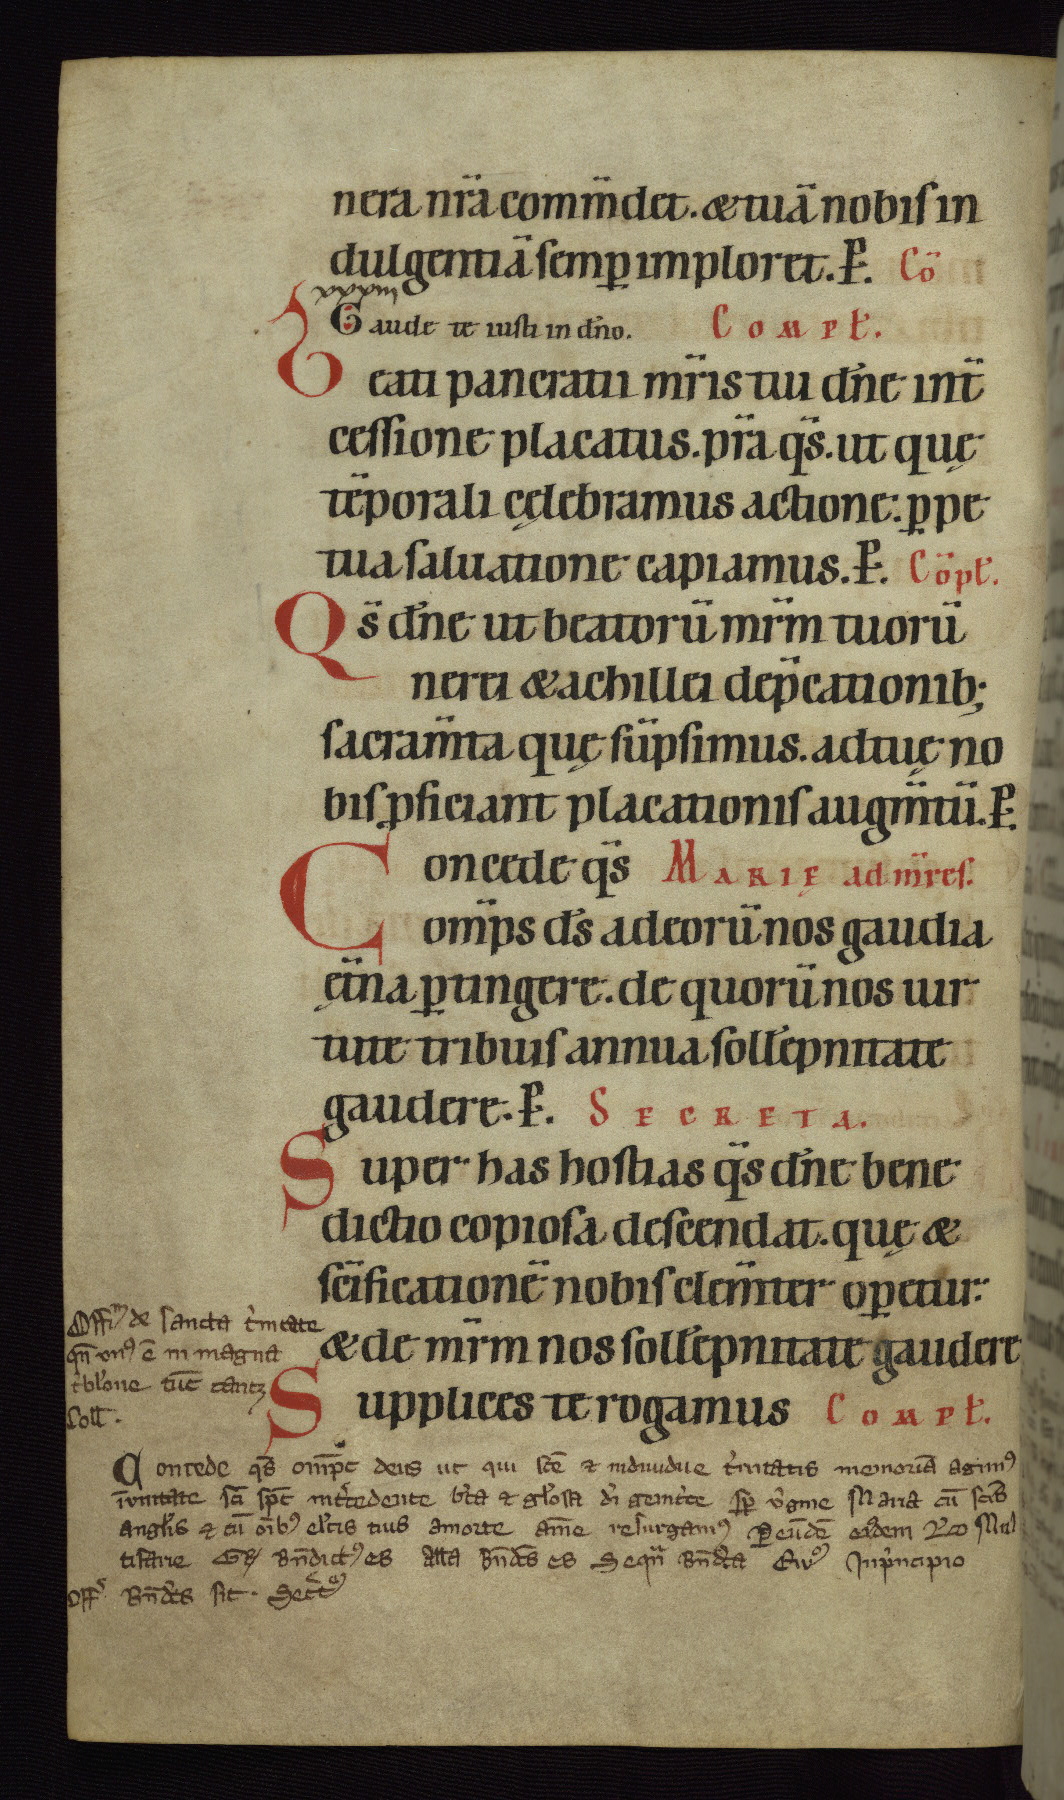 nera nr̄a com̄mdet. & tuā nobis in
dulgentiā semp̲ imploret. P̲. Cō
xxxiiii
Gaude te iusti in dn̄o. COMPL̄.
Beati pancratii mr̄is tui dn̄e int̄
cessione placatus. pr̄a qs̄. ut quę
tēporali cęlebramus actione: p̲pe
tua saluatione capiamus. P̲. Cōpl̄.
Qs̄ dn̄e ut beatorū mr̄m tuorū
nerei & achillei dep̄cationib;
sacram̄ta quę sūpsimus. ad tuę no
bis p̲ficiant placationis augm̄tū. P̲.
Concede qs̄ MARIĘ ad mr̄es.
om̄ps ds̄ ad eorū nos gaudia
ęt̄na p̲tingere. de quorū nos uir
tute tribuis annua soll̄epnitate
gaudere. P̲. SECRETA.
Super has hostias qs̄ dn̄e bene
dictio copiosa descendat. quę &
sc̄ificationē nobis clem̄ter op̲etur:
& de mr̄m nos soll̄epnitate gaudere
Supplices te rogamus COMPL̄.
Offim̄ de sancta t'nitate
qn̄ un9 ē in magna
t'bl'one tūc cantꝫ
Coll̄.
Concede qs̄ om̄pc̄ deus ut qui sc̄e & indiuidue t'nitatis memoriā agim9
sc̄i sp̄c int'cedente b'ta & gl'osa d'i genit'ce sp̲ v'gine Maria cū sc̄is
angl'is & cū oīb9 el'cis tuis amorte aīe resurgam9 P̲ eūdē
Gr̄ bn̄dict9 es all̄a bn̄dc̄s es Sequn̄ bn̄dc̄a Ew9 In p'ncipio
Off' Bn̄dc̄s sit. Sec̄t